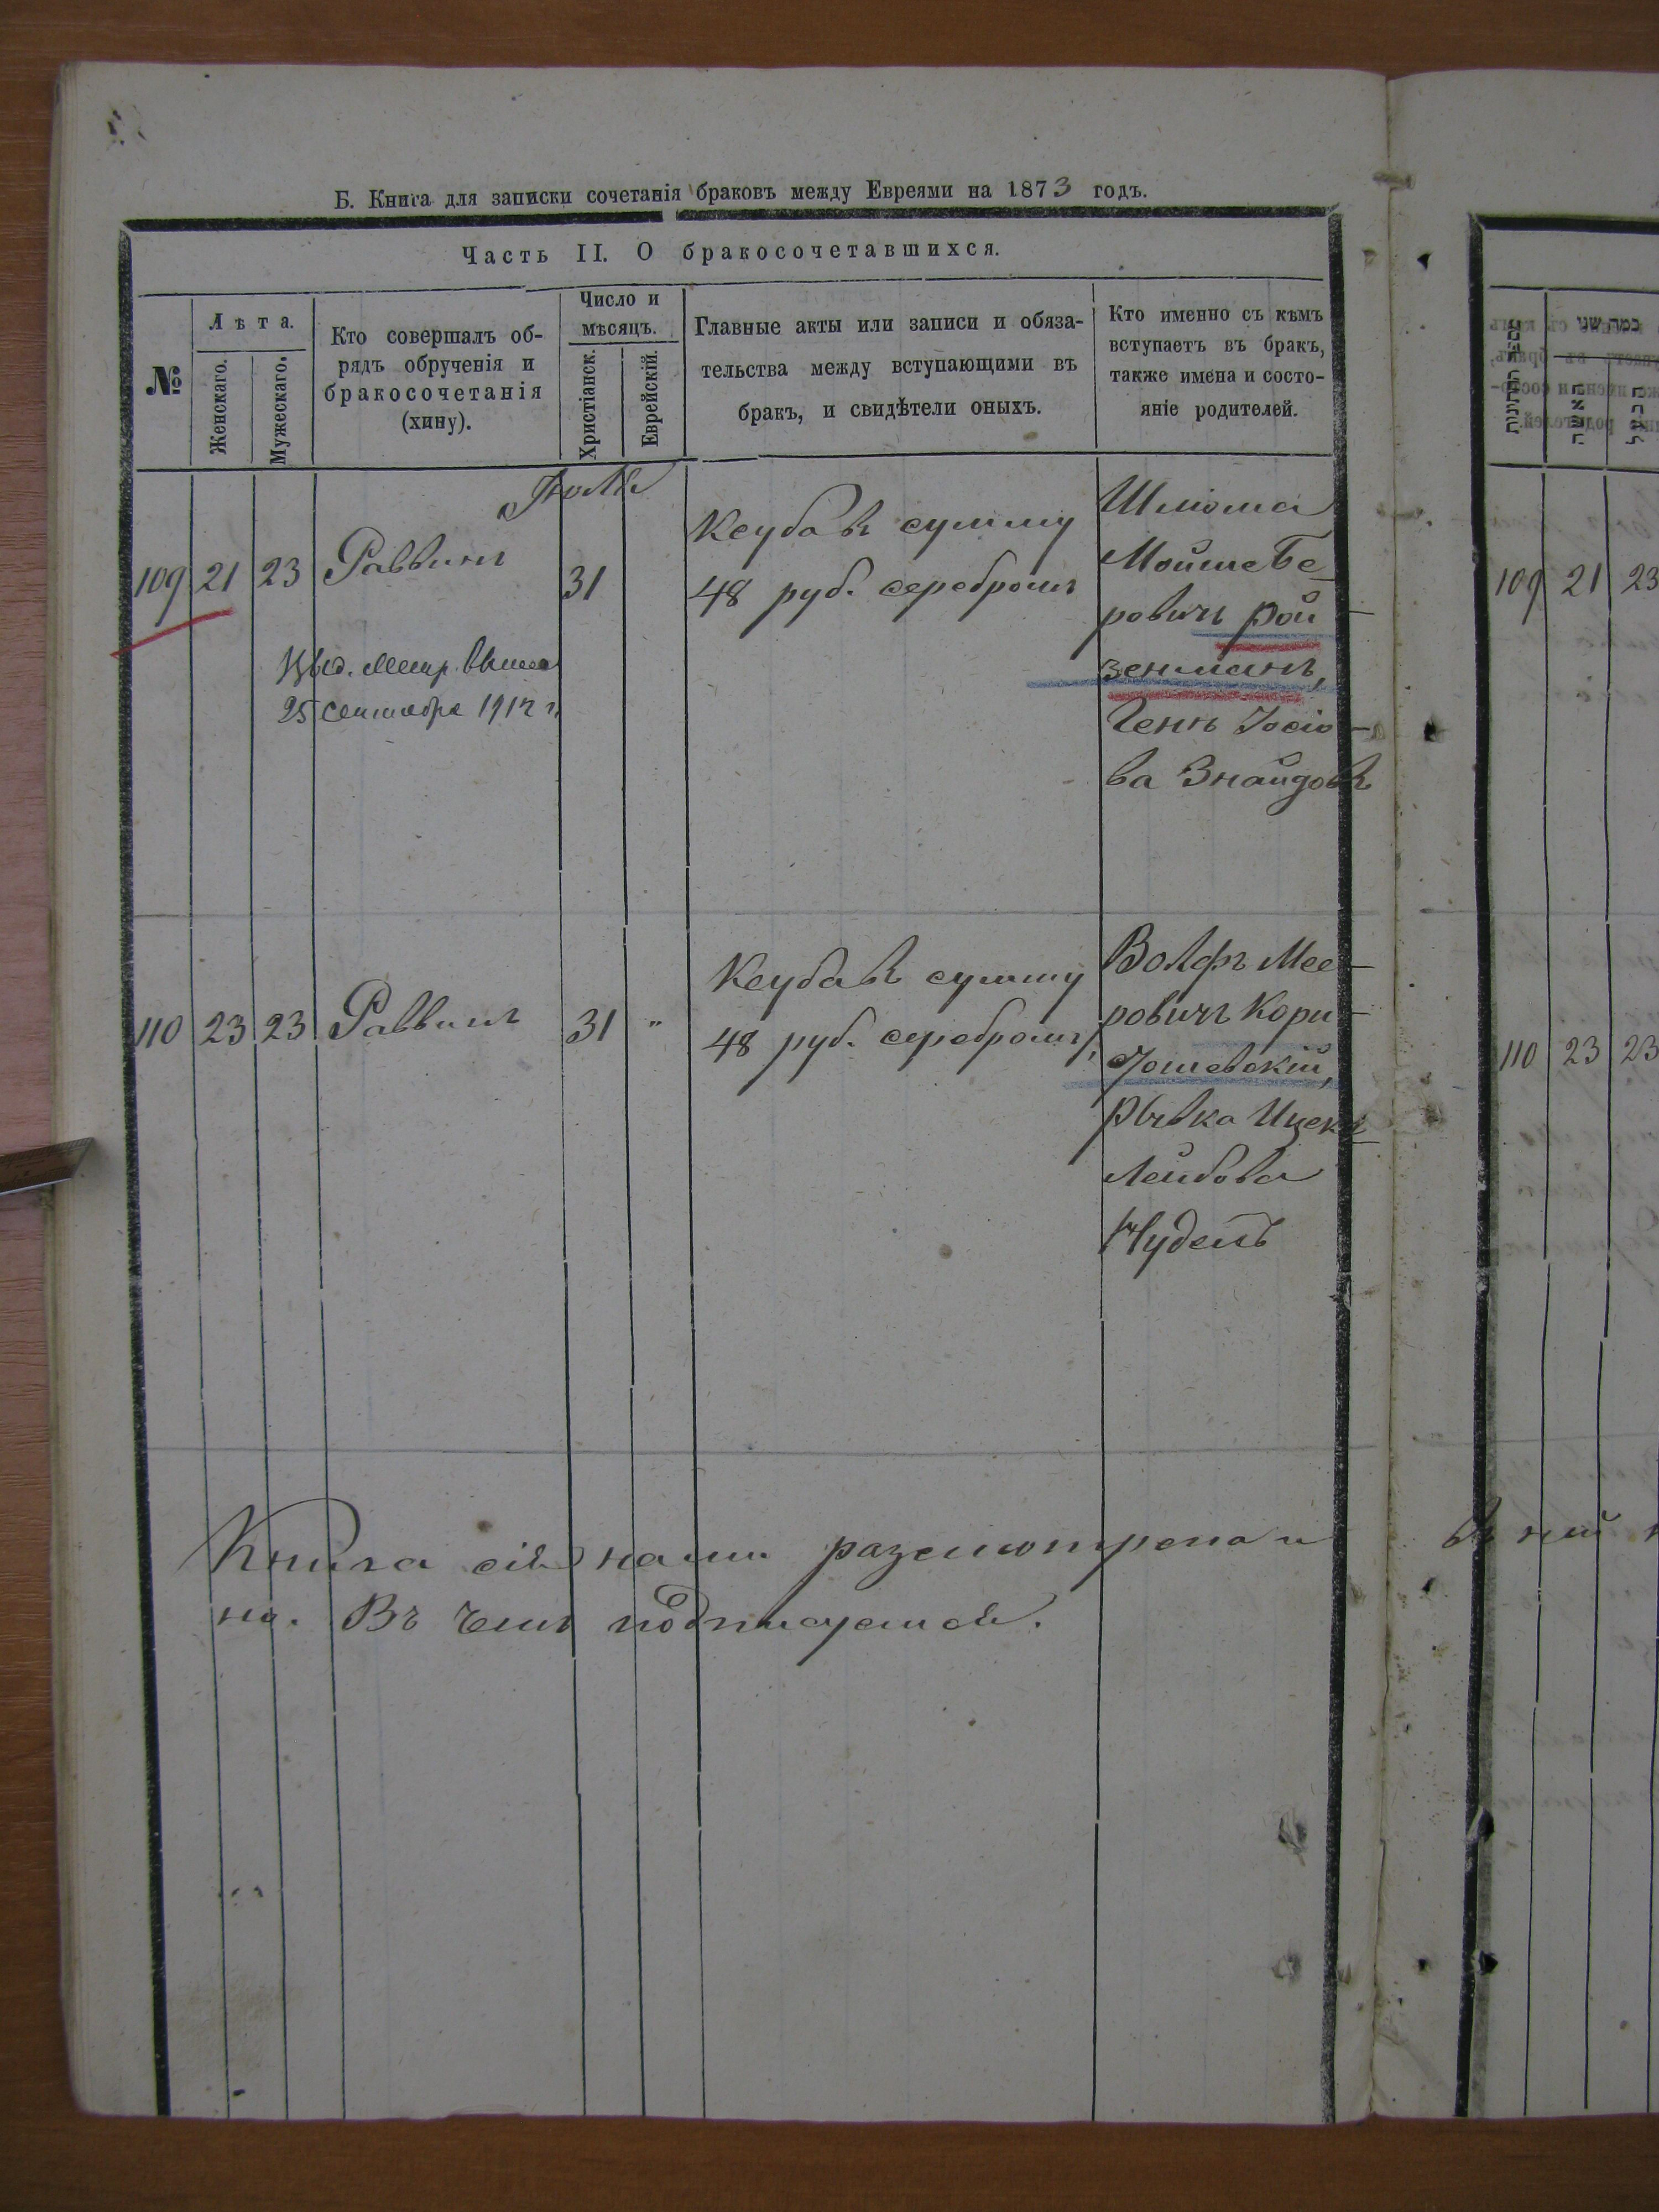 Б. Книга для записки сочетанія браковъ между Евреями на 1873 годъ.
Часть II. О бракосочетавшихся.
№
Лѣта.
Женскаго.
Мужескаго.
Кто совершалъ об-
рядъ обрученія и
бракосочетанія
(хину).
Число и
мѣсяцъ.
Христіанск.
Еврейскій.
Главные акты или записи и обяза-
тельства между вступающими въ
бракъ, и свидѣтели оныхъ.
Кто именно съ кѣмъ
вступаетъ въ бракъ,
также имена и состо-
яніе родителей.
109 21 23 Раввинъ
31
Кеуба въ сумму
48 руб. серебромъ
Шліома
Мойше Бе-
ровичъ Рой-
зенманъ,
Генѣ Іосіо-
ва Знайдовъ
25 сентября 1912 г.
110 23 23 Раввинъ 31 "
Кеуба въ сумму
48 руб. серебромъ,
Волфъ Мее-
ровичъ Кори-
Рывка Ицек-
Лейбова
Чудень
Книга сія нами разсмотрена и
на. Въ чемъ подписуемся.
כמה שני
האשה
הבעל
109 21 23
110 23 23